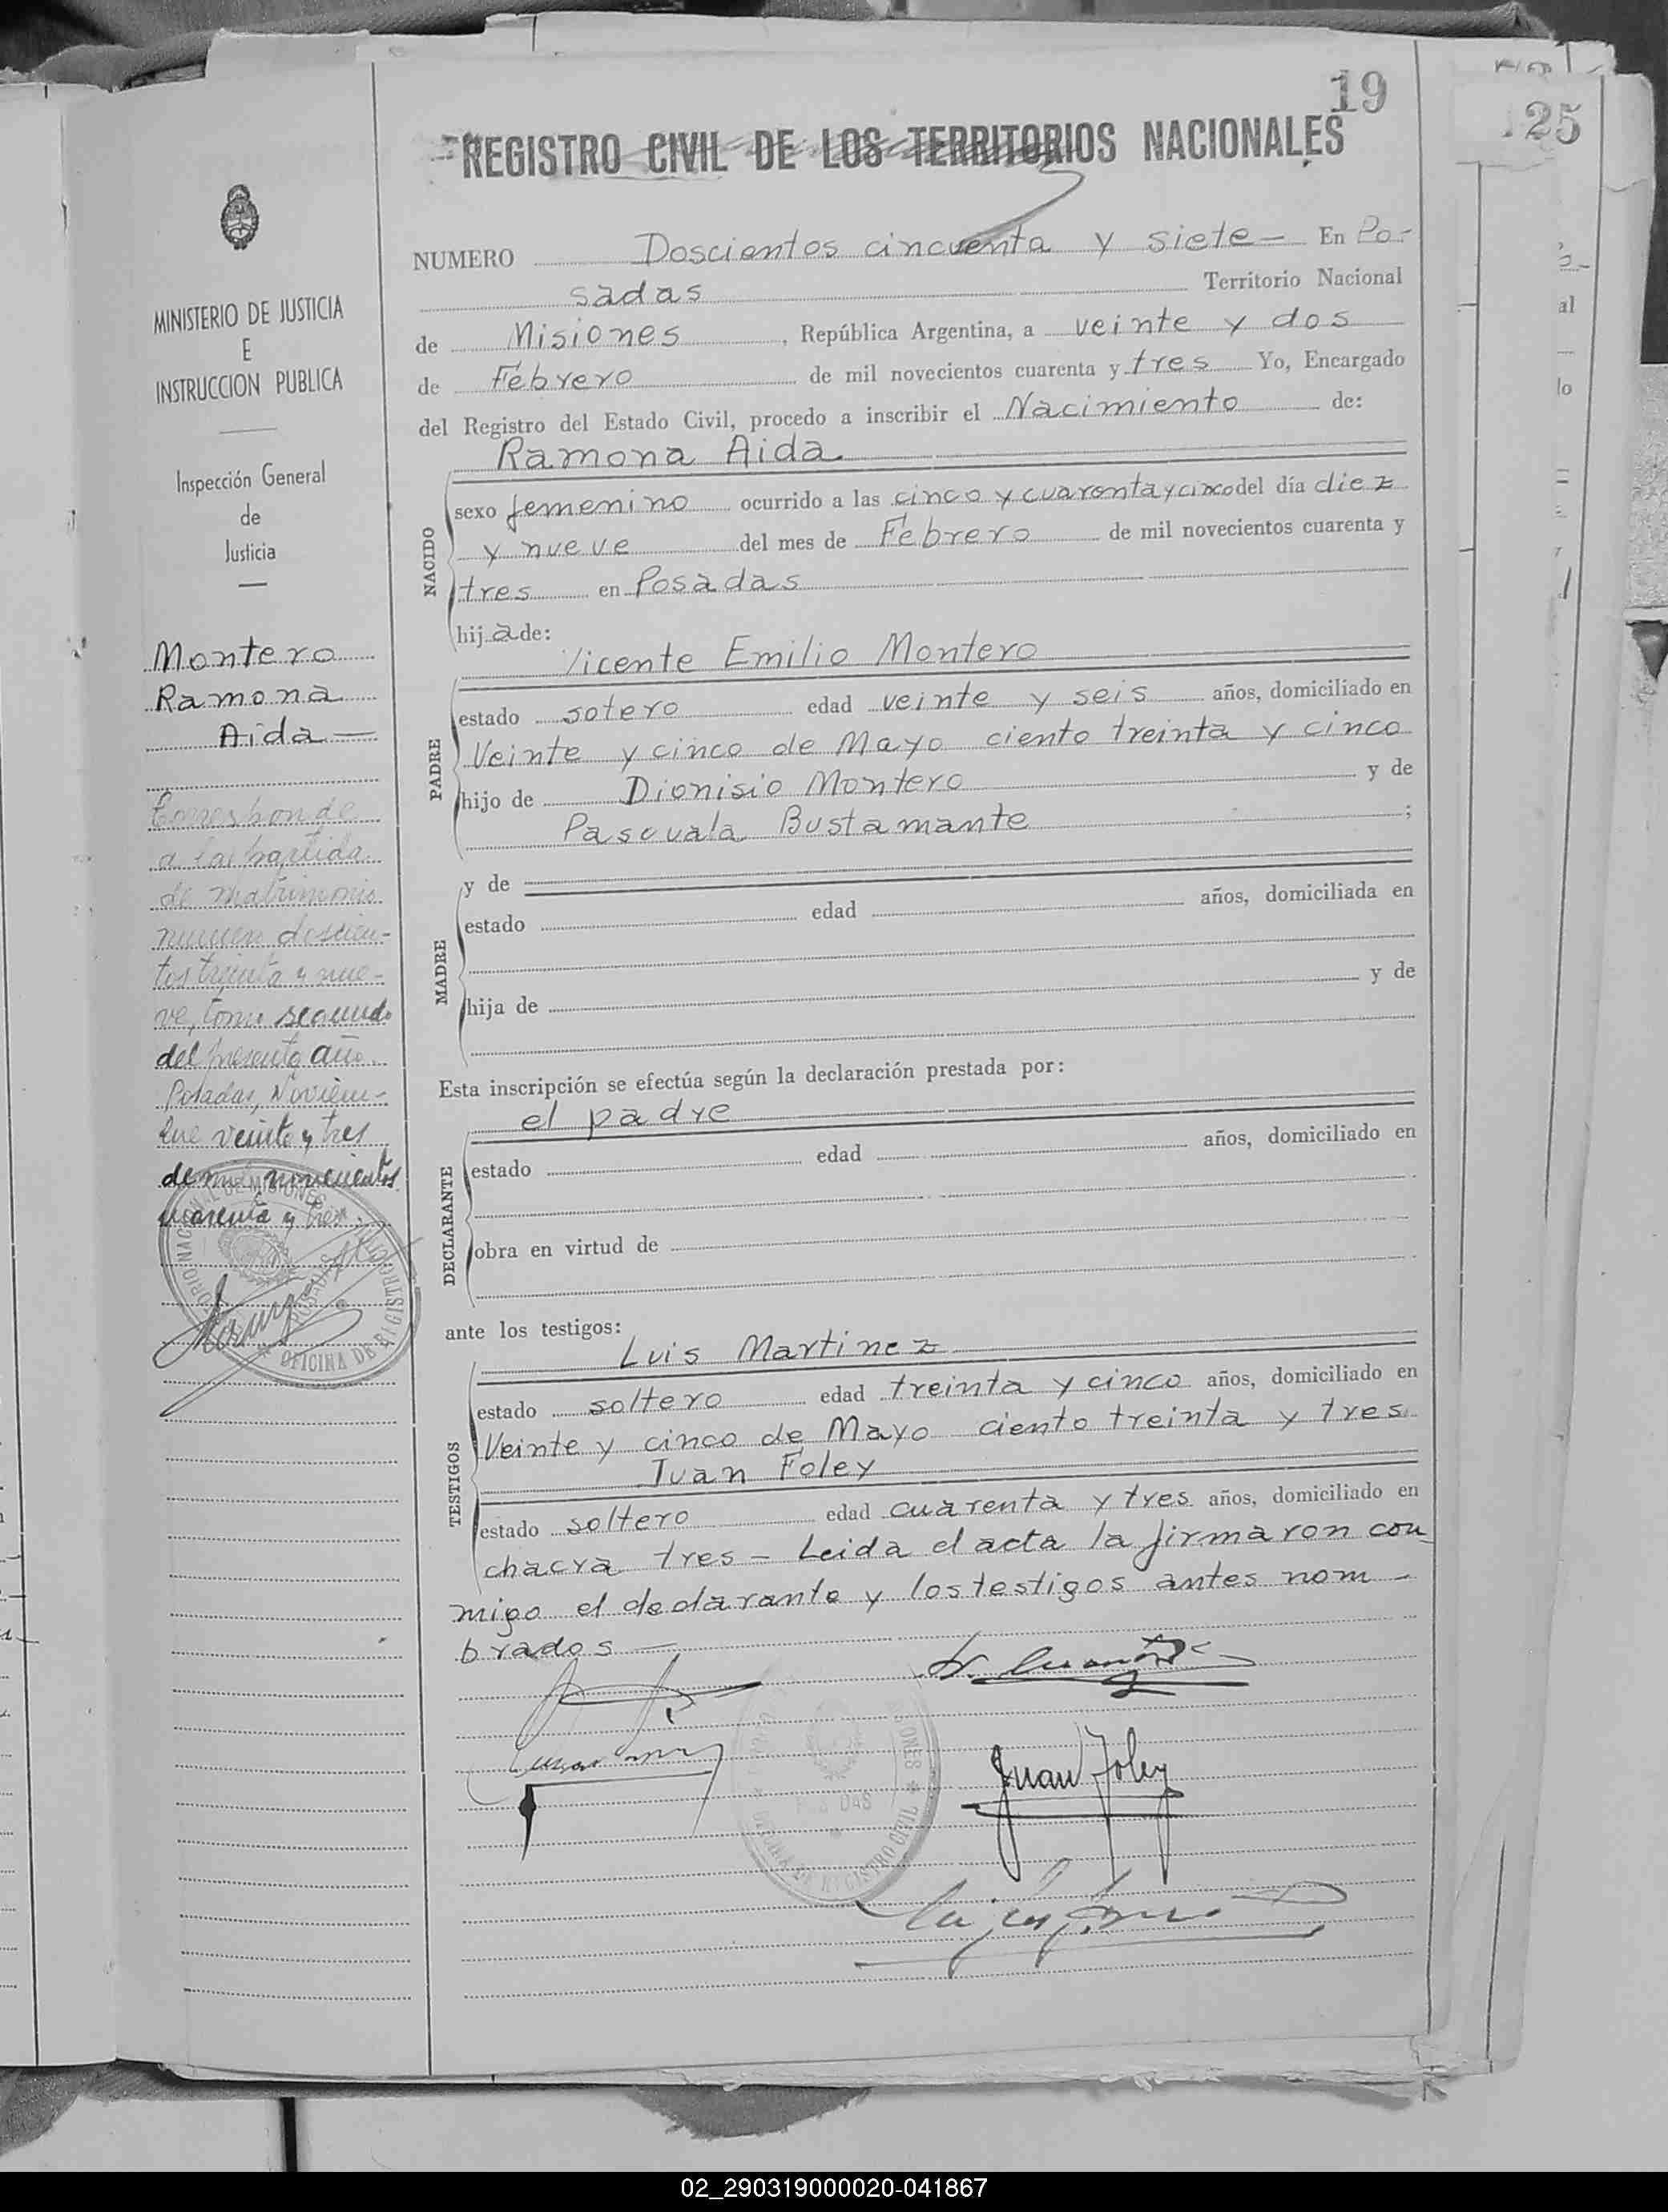 19
25
REGISTRO CIVIL DE LOS TERRITORIOS NACIONALES
MINISTERIO DE JUSTICIA
E
INSTRUCCION PUBLICA
Inspección General
de
Justicia
Montero
Ramona
Aida —
Corresponde
a la partida
de matrimonio
número doscien-
tos treinta y nue-
ve, tomo segundo
del presente año.
Posadas, Noviem-
bre veinte y tres
de mil novecientos
cuarenta y tres.
NUMERO Doscientos cincuenta y siete — En Po-
sadas Territorio Nacional
de Misiones, República Argentina, a veinte y dos
de Febrero de mil novecientos cuarenta y tres Yo, Encargado
del Registro del Estado Civil, procedo a inscribir el Nacimiento de:
Ramona Aida
NACIDO
sexo femenino ocurrido a las cinco y cuarenta y cinco del día diez
y nueve del mes de Febrero de mil novecientos cuarenta y
tres en Posadas
hija de:
Vicente Emilio Montero
PADRE
estado sotero edad veinte y seis años, domiciliado en
Veinte y cinco de Mayo ciento treinta y cinco
hijo de Dionisio Montero y de
Pascuala Bustamante ;
MADRE
y de
estado edad años, domiciliada en
hija de y de
Esta inscripción se efectúa según la declaración prestada por:
el padre
DECLARANTE
estado edad años, domiciliado en
obra en virtud de
ante los testigos:
Luis Martinez
TESTIGOS
estado soltero edad treinta y cinco años, domiciliado en
Veinte y cinco de Mayo ciento treinta y tres
Juan Foley
estado soltero edad cuarenta y tres años, domiciliado en
chacra tres — Leida el acta la firmaron con
migo el declarante y los testigos antes nom-
brados —
Juan Foley
OFICINA DE REGISTRO CIVIL
02_290319000020-041867